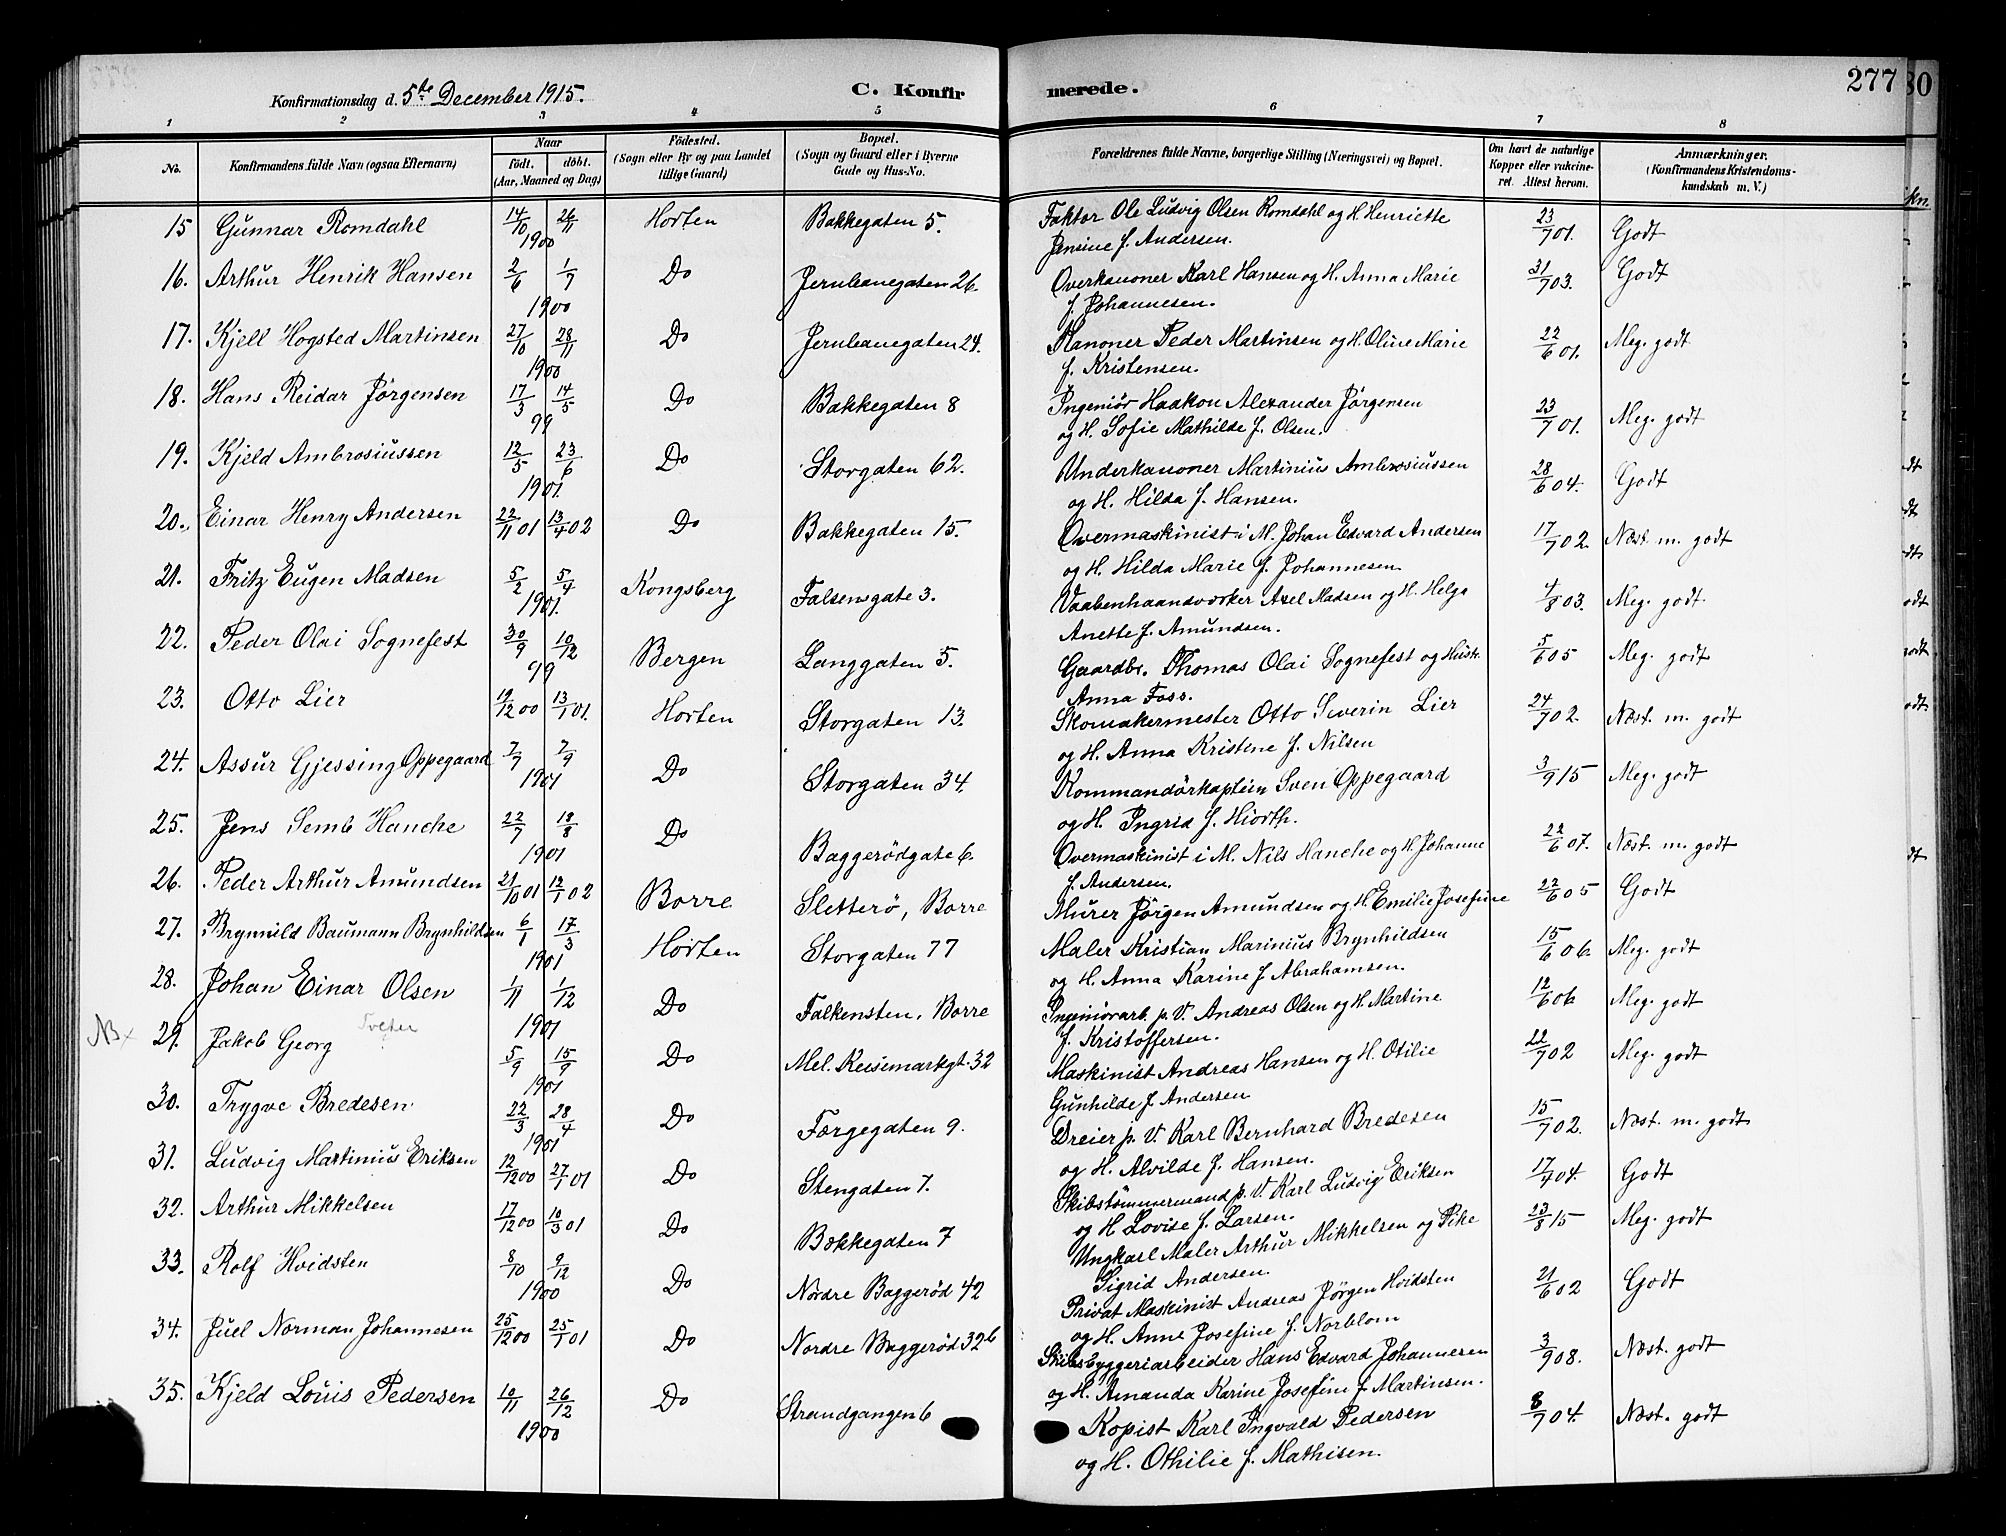 277
80
Konfirmationsdag d. 5te December 1915.
C. Konfirmerede.
1 2 3 4 5 6 7 8
No. Konfirmandens fulde Navn (ogsaa Efternavn) Naar Født. døbt. (Aar, Maaned og Dag) Fødested. (Sogn eller By og paa Landet tillige Gaard) Bopæl. (Sogn og Gaard eller i Byerne Gade og Hus-No. Forældrenes fulde Navne, borgerlige Stilling (Næringsvei) og Bopæl. Om havt de naturlige Kopper eller vakcineret. Attest herom. Anmærkninger. (Konfirmandens Kristendomskundskab m. V.)
15 Gunnar Romdahl 14/10 26/11 1900 Horten Bakkegaten 5. Faktor Ole Ludvig Olsen Romdahl og H. Henriette Jensine f. Andersen. 23/7 01. Godt
16. Arthur Henrik Hansen 2/6 1/7 1900 Do Jernbanegaten 26. Overkanoner Karl Hansen og H. Anna Marie f. Johannesen. 31/7 03. Godt
17. Kjell Hogsted Martinsen 27/10 28/11 1900 Do Jernbanegaten 24. Kanoner Peder Martinsen og H. Oline Marie f. Kristensen. 22/6 01. Meg. godt
18. Hans Reidar Jørgensen 17/3 14/5 99 Do Bakkegaten 8 Ingeniör Haakon Alexander Jørgensen og H. Sofie Mathilde f. Olsen. 23/7 01. Meg. godt
19. Kjeld Ambrosiussen 12/5 23/6 1901. Do Storgaten 62. Underkanoner Martinius Ambrosiussen og H. Hilda f. Hansen. 28/6 04. Godt
20. Einar Henry Andersen 22/11 01 13/4 02 Do Bakkegaten 15. Overmaskinist i M. Johan Edvard Andersen og H. Hilda Marie f. Johannesen 17/7 02. Næst m. godt
21. Fritz Eugen Madsen 5/2 5/4 1901. Kongsberg Falsensgate 3. Vaabenhaandverker Axel Madsen og H. Helga Anette f. Amundsen. 4/8 03. Meg. godt
22. Peder Olai Sognefest 30/9 10/12 99 Bergen Langgaten 5. Gaardbr. Thomas Olai Sognefest og Hustr. Anna Foss. 5/6 05 Meg. godt
23. Otto Lier 19/12 00 13/1 01. Horten Storgaten 13. Skomakermester Otto Severin Lier og H. Anna Kristene f. Nilsen 24/7 02. Næst. m. godt
24. Assur Gjessing Oppegaard 7/7 7/9 1901 Do Storgaten 34. Kommandörkaptein Sven Oppegaard og H. Ingrid f. Hiorth. 3/9 15 Meg. godt
25. Jens Semb Hanche 22/7 18/8 1901 Do Baggerödgate 6. Overmaskinist i M. Nils Hanche og H. Johanne f. Andersen. 22/6 07. Næst. m. godt
26. Peder Arthur Amundsen 21/10 01 12/1 02 Borre Sletterø, Borre Murer Jörgen Amundsen og H. Emilie Josefine 22/6 05 Godt
27. Brynmild Baumann Brynhildsen 6/1 17/3 1901 Horten Storgaten 77 Maler Kristian Marinius Brynhildsen og H. Anna Karine f. Abrahamsen. 15/6 06. Meg. godt
28. Johan Einar Olsen 1/11 1/12 1901 Do Falkensten, Borre Ingeniörarb. p. V. Andreas Olsen og H. Martine f. Kristoffersen. 12/6 06 Meg. godt
NB x 29. Jakob Georg Tveter 5/9 15/9 1901 Do Mel. Keisemarkgt. 32 Maskinist Andreas Hansen og H. Otilie Gunhilde f. Andersen 22/7 02 Meg. godt
30. Trygve Bredesen 22/3 28/4 1901 Do Færgegaten 9. Dreier p. V. Karl Bernhard Bredesen og H. Alvilde f. Hansen. 15/7 02. Næst. m. godt
31. Ludvig Martinius Eriksen 12/12 00 27/1 01 Do Stengaten 7. Skibstömmermand p. V. Karl Ludvig Eriksen og H. Lovise f. Larsen. 17/7 04. Godt
32. Arthur Mikkelsen 17/12 00 10/3 01 Do Bakkegaten 7 Ungkarl Maler Arthur Mikkelsen og Pike Sigrid Andersen. 23/8 15 Meg. godt
33. Rolf Hvidsten 8/10 9/12 1900 Do Nordre Baggeröd 42 Privat Maskinist Andreas Jörgen Hvidsten og H. Anne Josefine f. Norblom 21/6 02 Godt
34. Juel Norman Johannesen 25/12 00 25/1 01 Do Nordre Baggeröd 32b Skibsbyggeriarbeider Hans Edvard Johannesen og H. Amanda Karine Josefine f. Martinsen. 3/9 08. Næst. godt
35. Kjeld Louis Pedersen 10/11 26/12 1900 Do Strandgangen 6 Kopist Karl Ingvald Pedersen og H. Othilie f. Mathisen. 8/7 04. Næst. godt